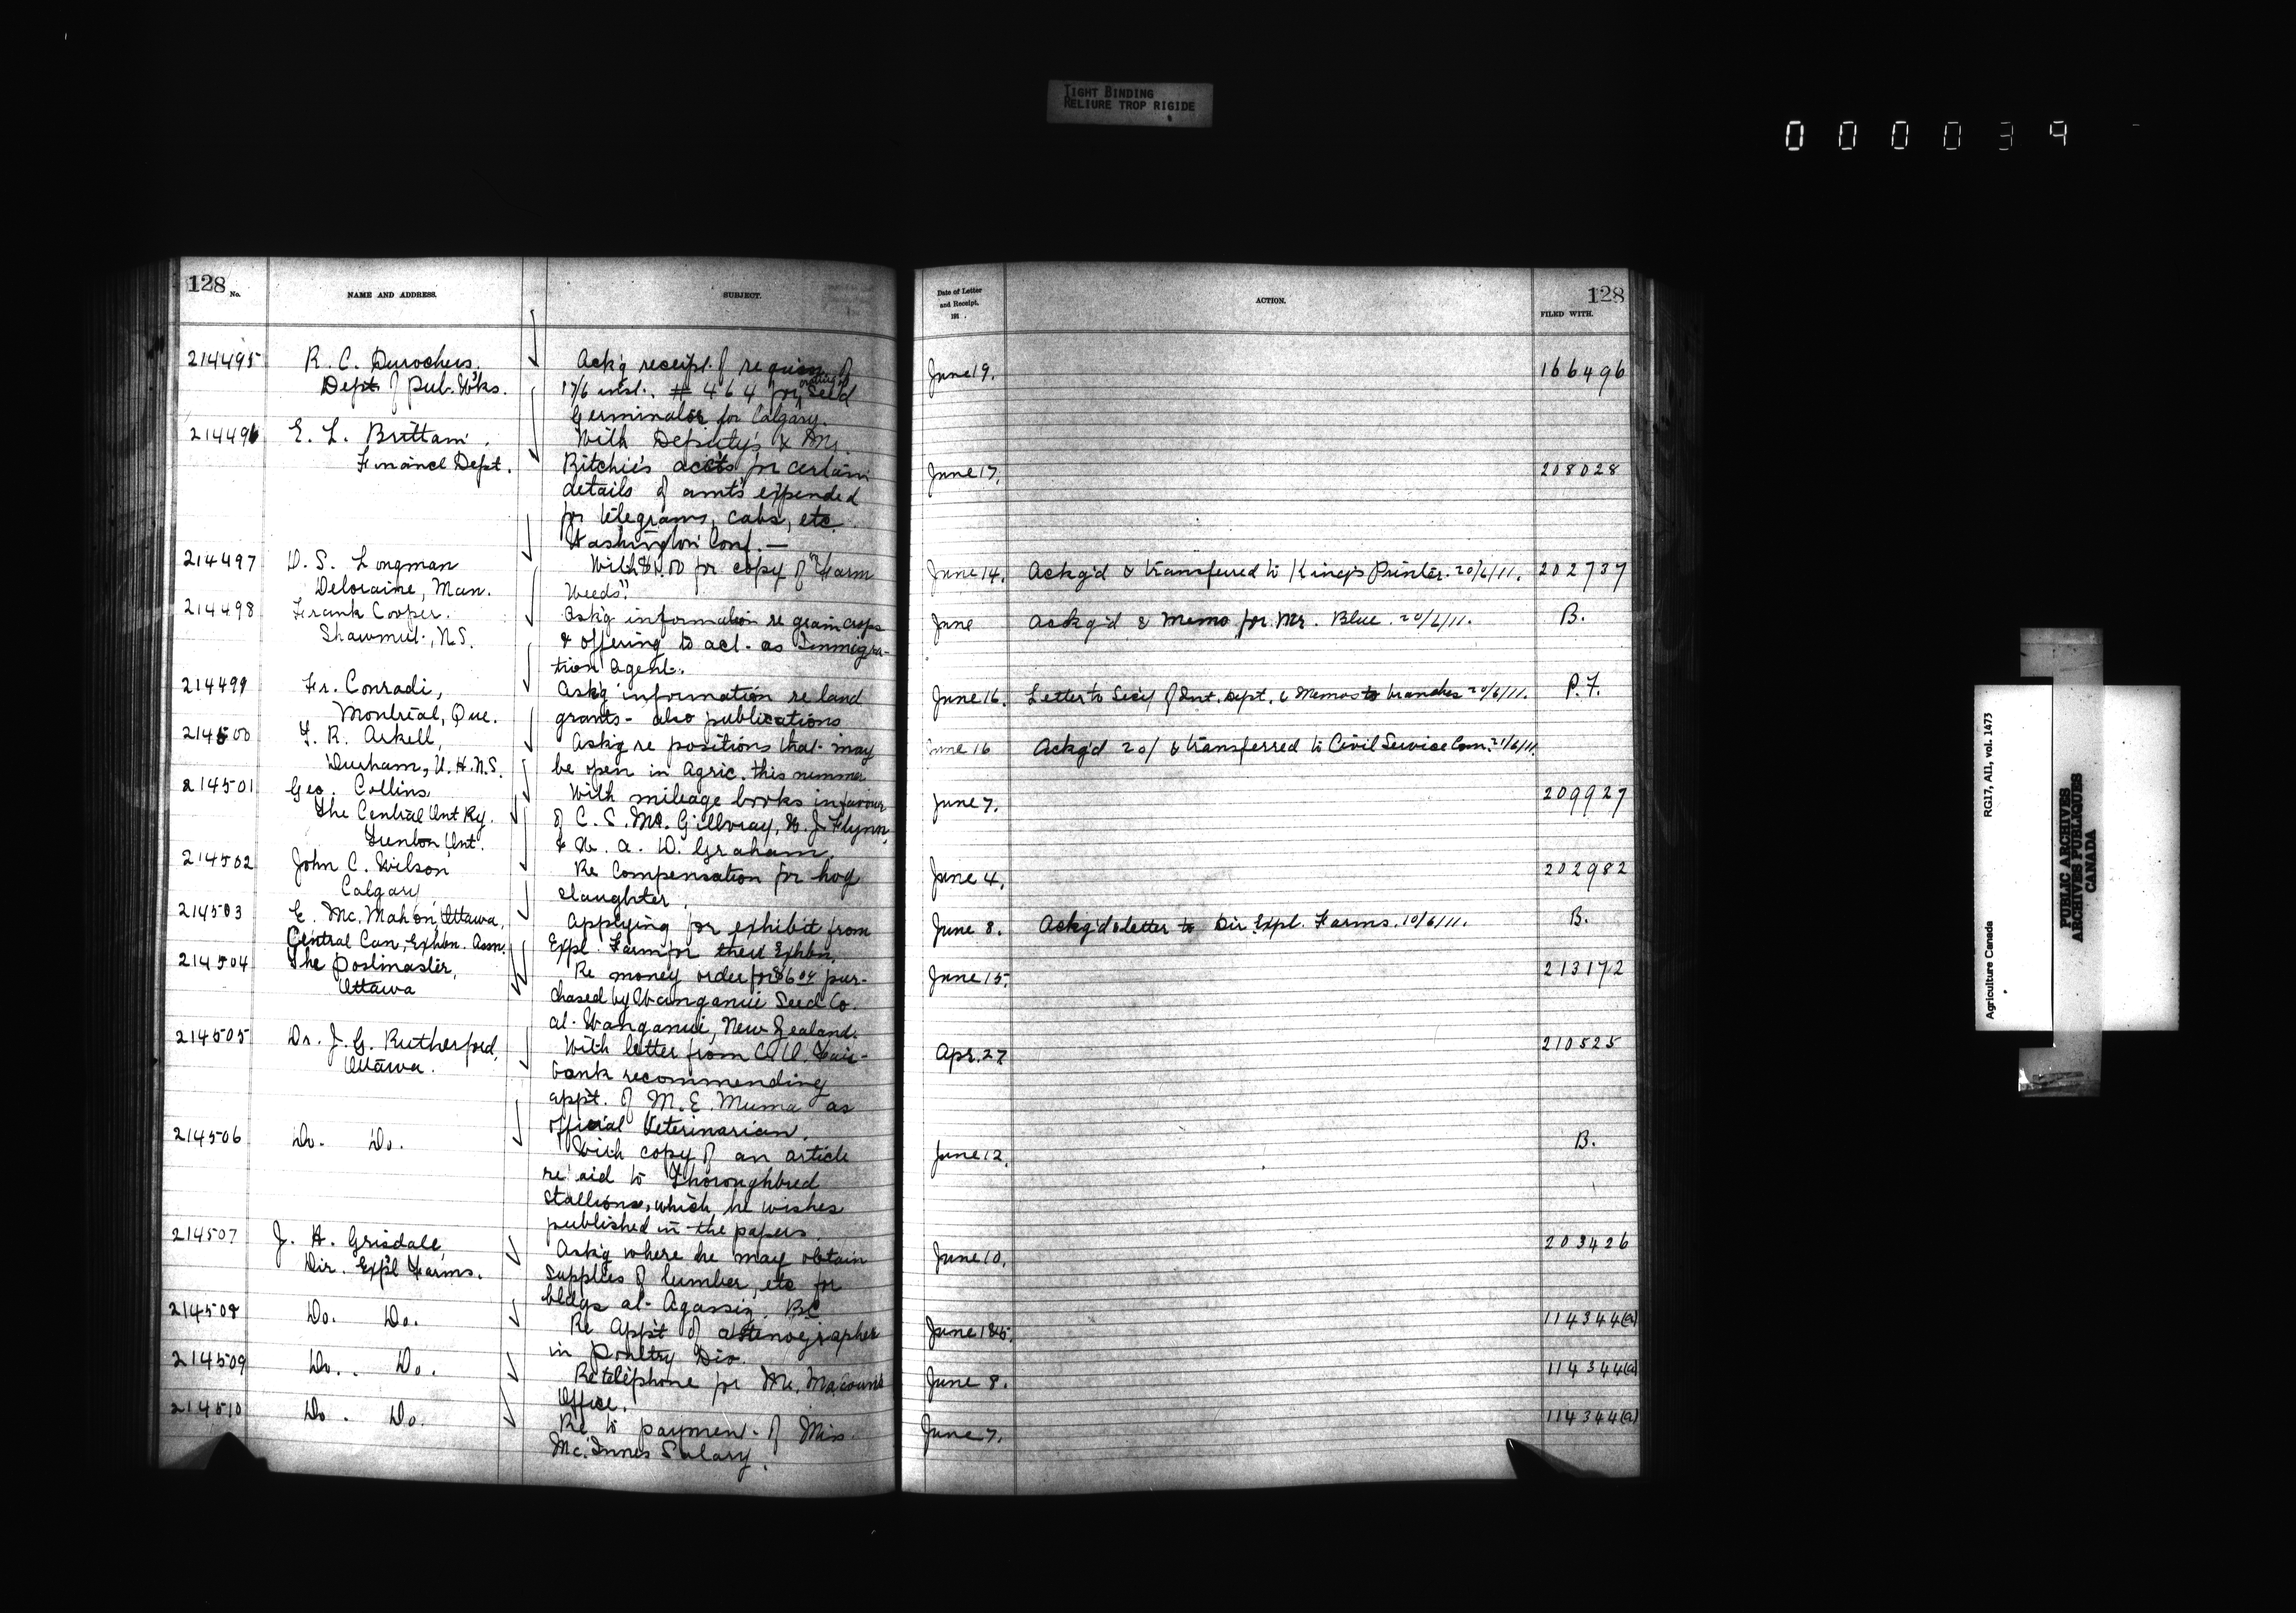 TIGHT BINDING
RELIURE TROP RIGIDE
000039
128
No.
NAME AND ADDRESS.
SUBJECT.
214495
R. C. Durochers.
Dept of Pub. Wks.
Ack'g receipt of requisn of
17/6 inst. # 464 for Seed
Germinator for Calgary.
214496
E. L. Brittain,
Financl Dept.
With Deputy's & Mr.
Ritchie's accts for certain
details of amts expended
for telegrams, cabs, etc
Washington Conf. —
214497
D. S. Longman
Deloraine, Man.
With $1.00 for copy of "Farm
Weeds".
214498
Frank Cooper.
Shawmut, N.S.
Ask'g information re grain crops
& offering to act as Immigra-
tion agent.
214499
Fr. Conradi,
Montreal, Que.
Ask'g information re land
grants - also publications
214500
F. R. Arkell,
Durham, U. H. N.S.
Ask'g re positions that may
be open in Agric. this summer
214501
Geo. Collins
The Central Ont Ry.
Trenton Ont.
With mileage books in favour
of C. S. McGillvray, W. J. Flynn,
& W. A. D. Graham
214502
John C. Wilson
Calgary
Re Compensation for hog
slaughter.
214503
E. Mc. Mahon, Ottawa,
Central Can. Exhbn. Assn.
Applying for exhibit from
Expl. Farm for their Exhbn.
214504
The Postmaster,
Ottawa
Re money order for $6.04 pur-
chased by Wanganui Seed Co.
at Wanganui, New Zealand.
214505
Dr. J. G. Rutherford,
Ottawa.
With letter from Fair-
bank recommending
appt. of M. E. Muma as
official Veterinarian.
214506
Do. Do.
With copy of an article
re aid to Thoroughbred
Stallions, which he wishes
published in the papers.
214507
J. H. Grisdale,
Dir. Exp'l Farms.
Ask'g where he may obtain
supplies of lumber, etc for
bldgs at Agassiz. B.C.
214508
Do. Do.
Re App't of a Stenographer
in Poultry Div.
214509
Do. Do.
Re telephone for Mr. Macouns
Office.
214510
Do. Do.
Re to payment of Miss
Mc. Innes Salary.
Date of Letter
and Receipt.
191 .
ACTION.
128
FILED WITH.
June 19.
166496
June 17.
208028
June 14. Ackg'd & transferred to King's Printer. 20/6/11. 202737
June Ackg'd & Memo for Mr. Blue. 20/6/11. B.
June 16. Letter to Secy of Int. Dept. & Memos to branches 20/6/11. P.F.
June 16 Ackg'd 20/ & transferred to Civil Service Com. 21/6/11.
June 7. 209927
June 4. 202982
June 8. Ackg'd & letter to Dir. Expl. Farms. 10/6/11. B.
June 15. 213172
Apr. 27 210525
June 12. B.
June 10. 203426
June 114344(a)
June 8. 114344(a)
June 7. 114344(a)
Agriculture Canada RG17, AII, vol. 1473
PUBLIC ARCHIVES
ARCHIVES PUBLIQUES
CANADA